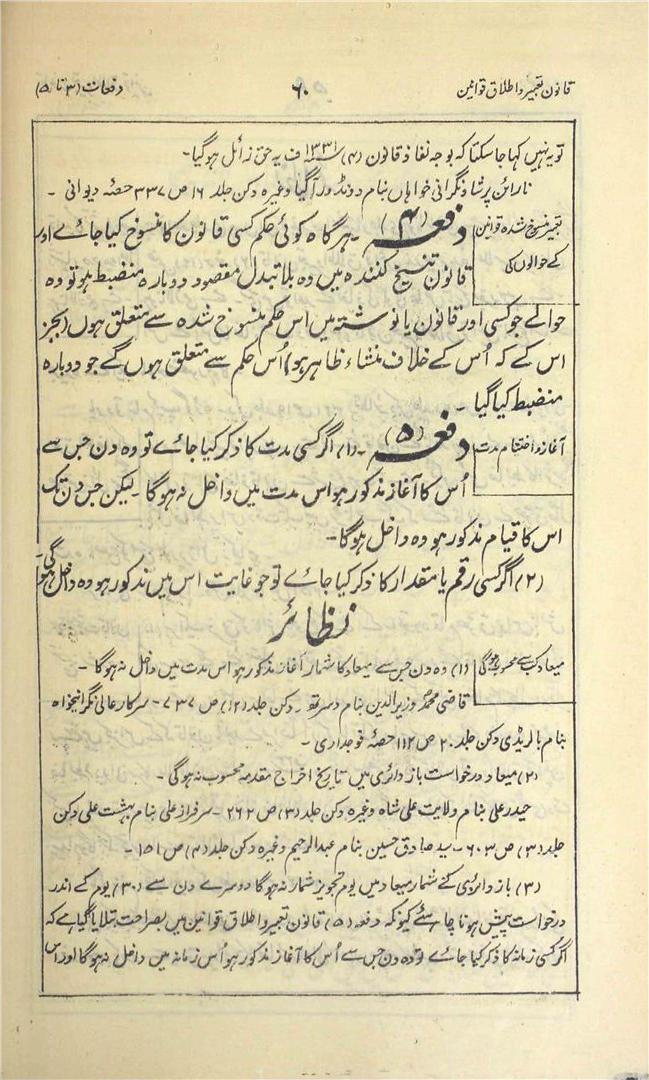 قانون تعبیر و اطلاق قوانین
۶۰
دفعات (۳ تا ۵)
تو یہ نہیں کہا جا سکتا کہ بوجہ نفاذ قانون (۴) ۱۳۳۱ ف یہ حق زائل ہو گیا۔
نارائن پرشاد نگرانی خواہاں بنام وغیرہ دکن جلد ۱۶ ص ۳۳۷ حصہ دیوانی۔
تعبیر منسوخ شدہ قوانین
کے حوالوں کی
دفعہ (۴)۔ ہر گاہ کوئی حکم کسی قانون کا منسوخ کیا جائے اور
قانون تنسیخ کنندہ میں وہ بلا تبدل مقصود دوبارہ منضبط ہو تو وہ
حوالے جو کسی اور قانون یا نوشتہ میں اس حکم منسوخ شدہ سے متعلق ہوں (بجز
اس کے کہ اُس کے خلاف منشاء ظاہر ہو) اُس حکم سے متعلق ہوں گے جو دوبارہ
منضبط کیا گیا۔
آغاز و اختتام مدت
دفعہ (۵)۔ (۱) اگر کسی مدت کا ذکر کیا جائے تو وہ دن جس سے
اُس کا آغاز مذکور ہو اس مدت میں داخل نہ ہو گا۔ لیکن جس دن تک
اس کا قیام مذکور ہو وہ داخل ہو گا۔
(۲) اگر کسی رقم یا مقدار کا ذکر کیا جائے تو جو غایت اس میں مذکور ہو وہ داخل ہو گی
نظائر
میعاد کب سے محسوب ہو گی
(۱) وہ دن جس سے میعاد کا شمار آغاز مذکور ہو اس مدت میں داخل نہ ہو گا۔
قاضی محمد وزیر الدین بنام دسرتھ۔ دکن جلد (۱۲) ص ۷۳۷۔ سرکار عالی نگرانیخواہ
بنام بالریڈی دکن جلد ۲۰ ص ۱۱۲ حصہ فوجداری۔
(۲) میعاد درخواست باز دائری میں تاریخ اخراج مقدمہ محسوب نہ ہو گی۔
حیدر علی بنام ولایت علی شاہ وغیرہ دکن جلد (۳) ص ۲۶۲۔ سرفراز علی بنام بہشت علی دکن
جلد (۳) ص ۶۰۳۔ سید صادق حسین بنام عبدالرحیم وغیرہ دکن جلد (۴) ص ۱۵۱۔
(۳) باز دائری کے شمار میعاد میں یوم تجویز شمار نہ ہو گا دوسرے دن سے (۳۰) یوم کے اندر
درخواست پیش ہونا چاہئے کیونکہ دفعہ (۵) قانون تعبیر و اطلاق قوانین میں بصراحت بتلایا گیا ہے کہ
اگر کسی زمانہ کا ذکر کیا جائے تو وہ دن جس سے اُس کا آغاز مذکور ہو اُس زمانہ میں داخل نہ ہو گا اور اس